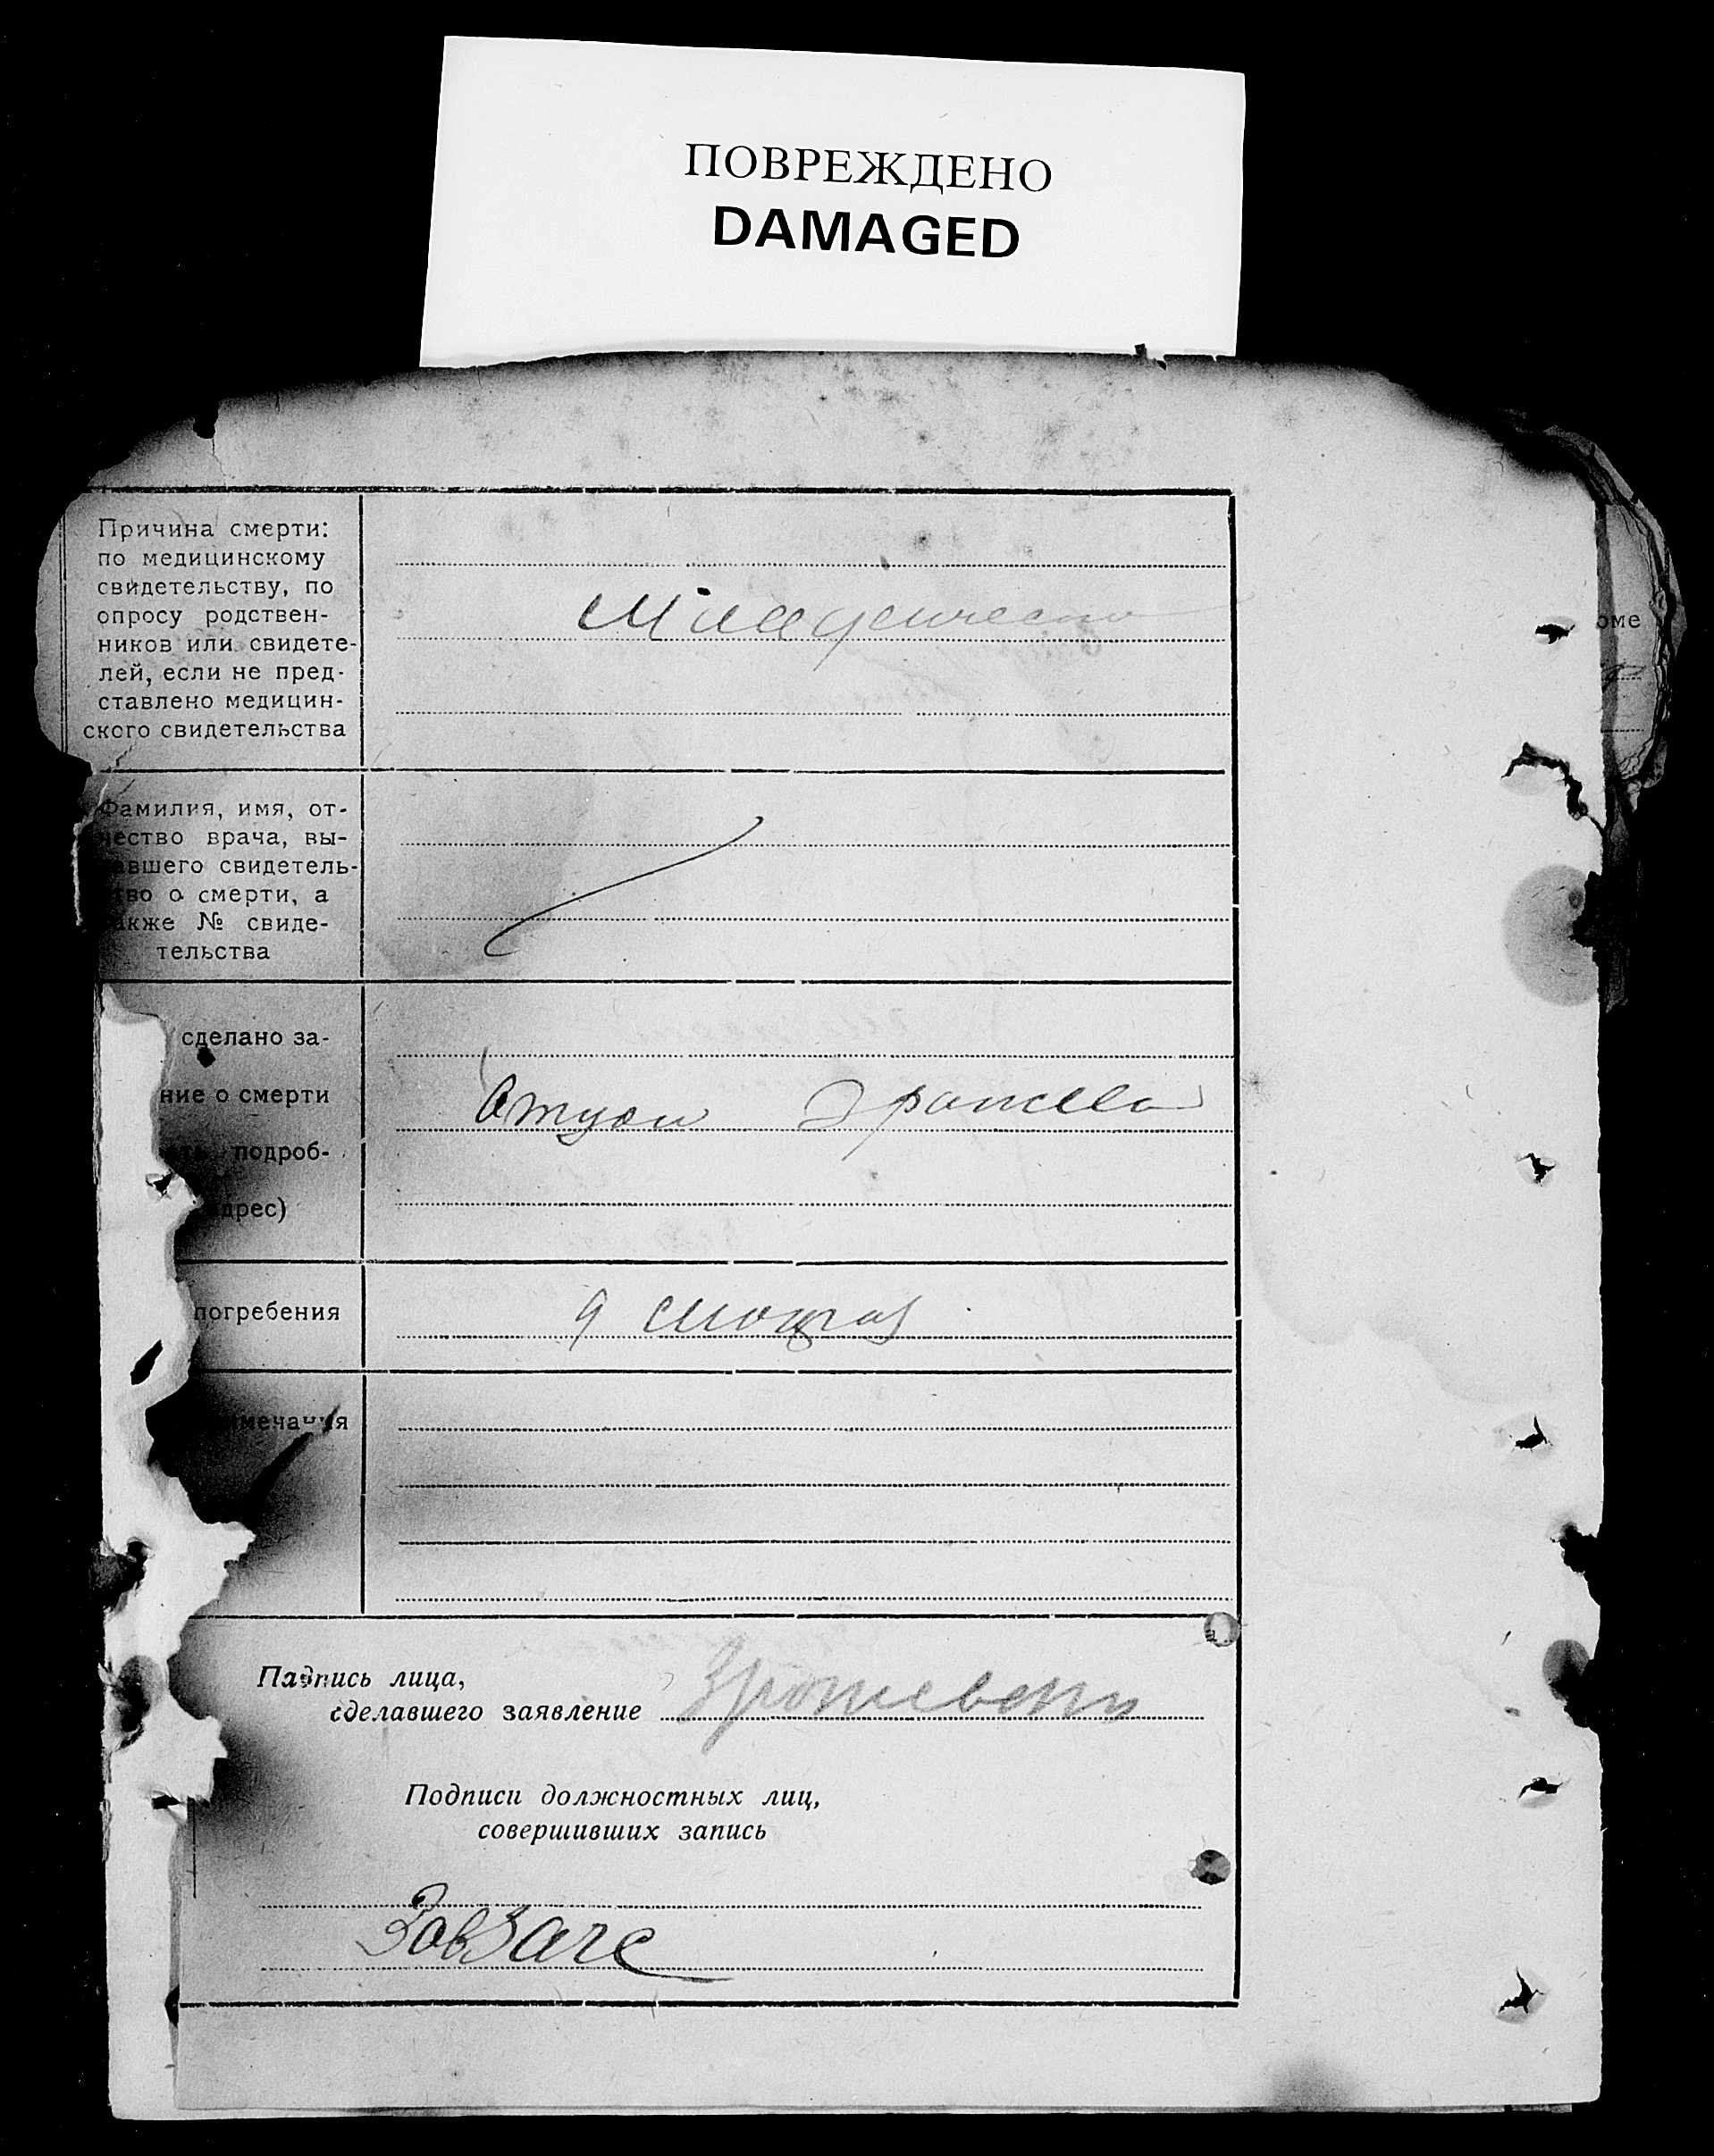 ПОВРЕЖДЕНО
DAMAGED
Причина смерти:
по медицинскому
свидетельству, по
опросу родствен-
ников или свидете-
лей, если не пред-
ставлено медицин-
ского свидетельства
оме
Фамилия, имя, от-
чество врача, вы-
авшего свидетель-
тво о смерти, а
акже № свиде-
тельства
сделано за-
ние о смерти
подроб-
дрес)
погребения
9
имечания
Подпись лица,
сделавшего заявление
Подписи должностных лиц,
совершивших запись